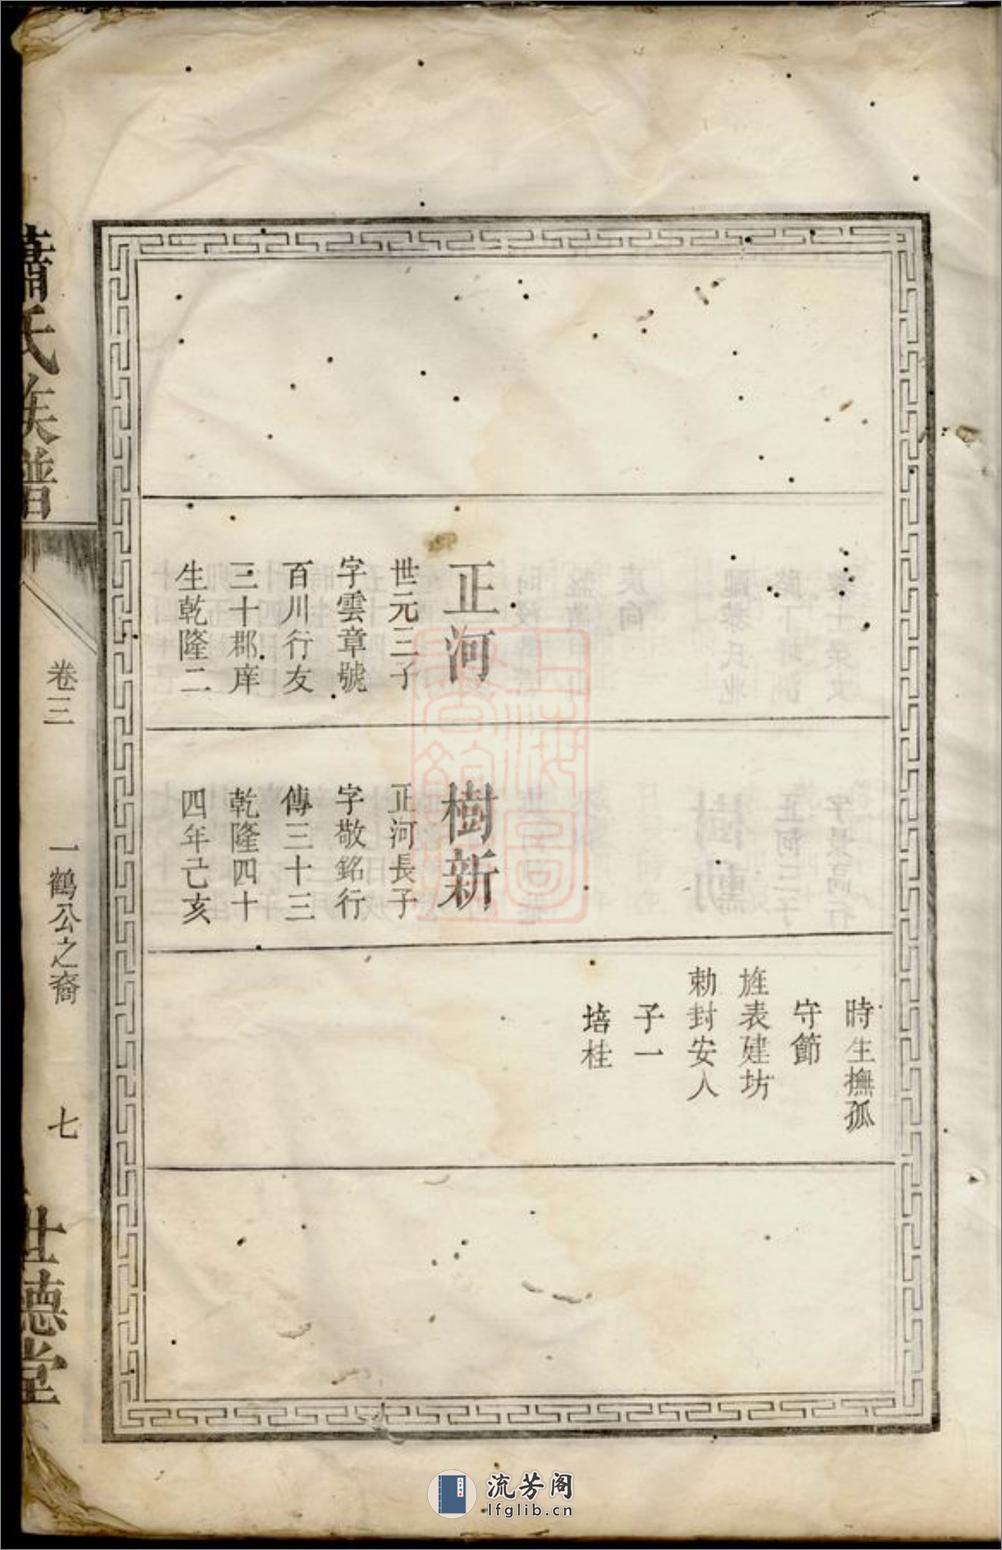 正河
世元三子
字雲章號
百川行友
三十郡庠
生乾隆二
樹新
正河長子
字敬銘行
傳三十三
乾隆四十
四年己亥
時生撫孤
守節
旌表建坊
勅封安人
子一
培桂
蕭氏族譜
卷三
一鶴公之裔
七
世德堂
流芳阁
lfglib.cn